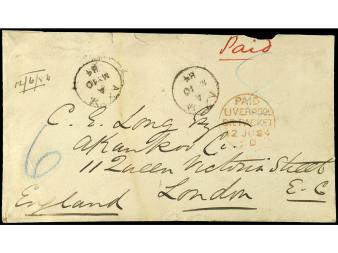 Paid
12/6/84
MY 10
84
A
MY 10
84
PAID
LIVERPOOL
PACKET
12 JU 84
C. E. Long Esq
Akankoo Co.
11 Queen Victoria Street
London E-C
England
6